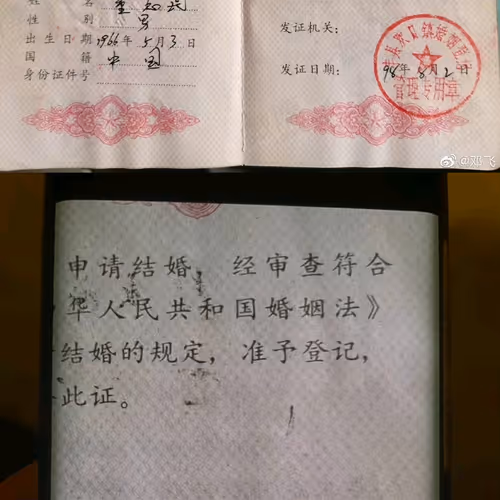 名
性 别 男
出生日期 1966年5月3日
国 籍 中国
身份证件号
发证机关:
发证日期: 98年 月2日
镇婚姻登记
管理专用章
@邓飞
申请结婚, 经审查符合
华人民共和国婚姻法》
结婚的规定, 准予登记,
此证。